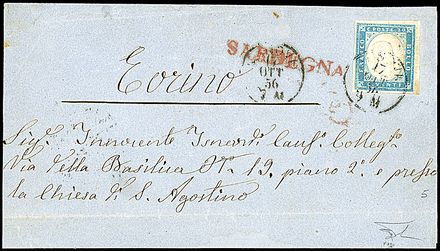 SARDEGNA
OTT
56
FRANCO
BOLLO
Torino
Sig.r Innocente Isnardi Caus.o Colleg.o
Via della Basilica N.o 19. piano 2.o e presso
la Chiesa di S. Agostino
5